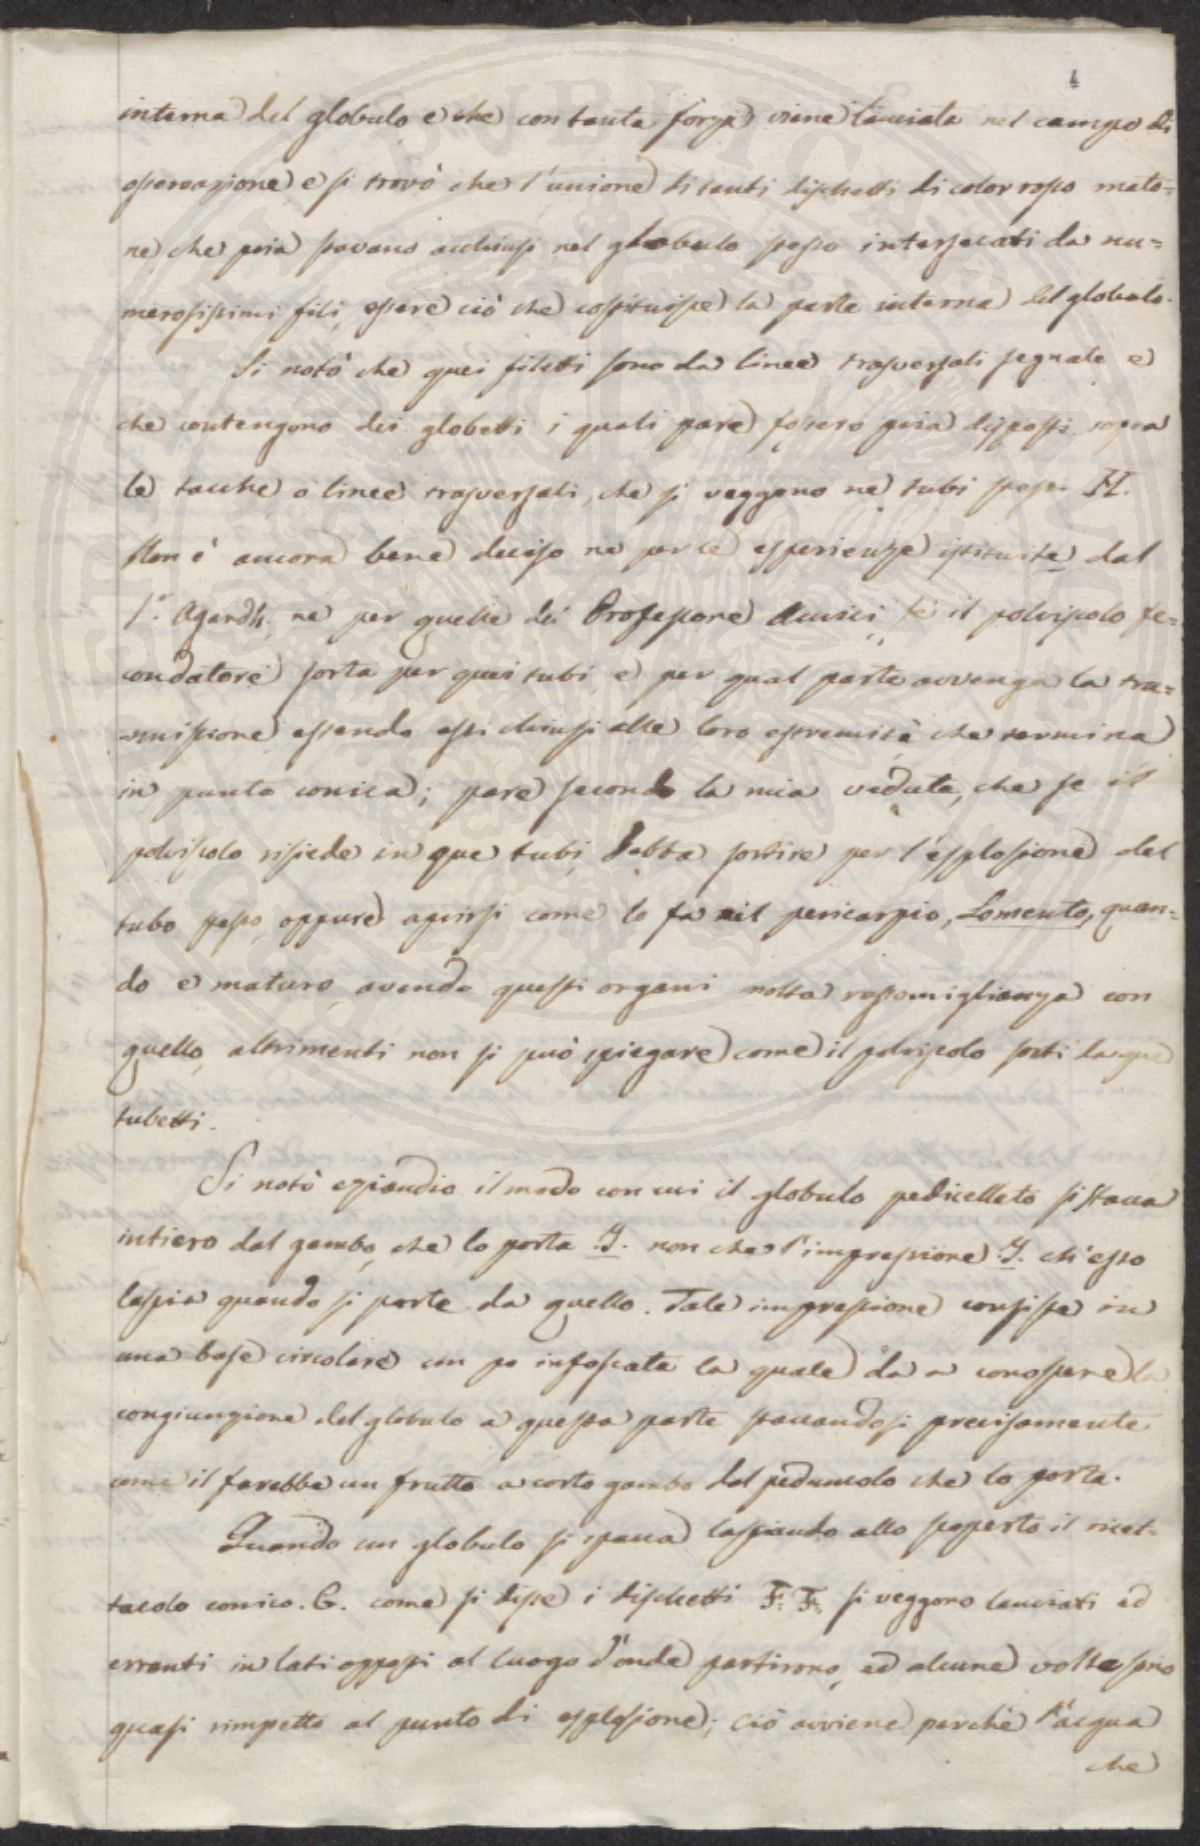 4
interna del globulo e che con tanta forza viene lanciata nel campo di
osservazione e si trovò che l'unione di tanti dischetti di color rosso mato=
ne che pria stavano acchiusi nel globulo stesso intersecati da nu=
merosissimi fili, essere ciò che costituisce la parte interna del globulo.
Si notò che quei filetti sono da linee trasversali segnate e
che contengono dei globetti i quali pare fossero pria disposti sopra
le tacche o linee trasversali, che si veggono ne tubi stessi H.
Non è ancora bene deciso ne per le esperienze istituite dal
S.r Agardh, ne per quelle del Professore Amici, se il polviscolo fe=
condatore sorta per quei tubi, e per qual parte avvenga la tra=
smissione essendo essi chiusi alle loro estremità che termina
in punta conica; pare secondo la mia veduta, che se il
polviscolo risiede in que tubi, debba sortire per l'esplosione del
tubo stesso, oppure aprirsi come lo fa il pericarpio, Lomento, quan=
do è maturo, avendo questi organi molta rassomiglianza con
quello, altrimenti non si può spiegare come il polviscolo sorti da que
tubetti.
Si notò eziandio il modo con cui il globulo pedicellato si stacca
intiero dal gambo, che lo porta I. non che l'impressione I. ch'esso
lascia quando si parte da quello. Tale impressione consiste in
una base circolare un po infoscata la quale da a conoscere la
congiunzione del globulo a questa parte staccandosi precisamente
come il farebbe un frutto a corto gambo dal peduncolo che lo porta.
Quando un globulo si spacca lasciando allo scoperto il ricet=
tacolo conico. G. come si disse i dischetti F. F. si veggono lanciati ed
erranti in lati opposti al luogo d'onde partirono, ed alcune volte sono
quasi rimpetto al punto di esplosione; ciò avviene perchè l'acqua
che